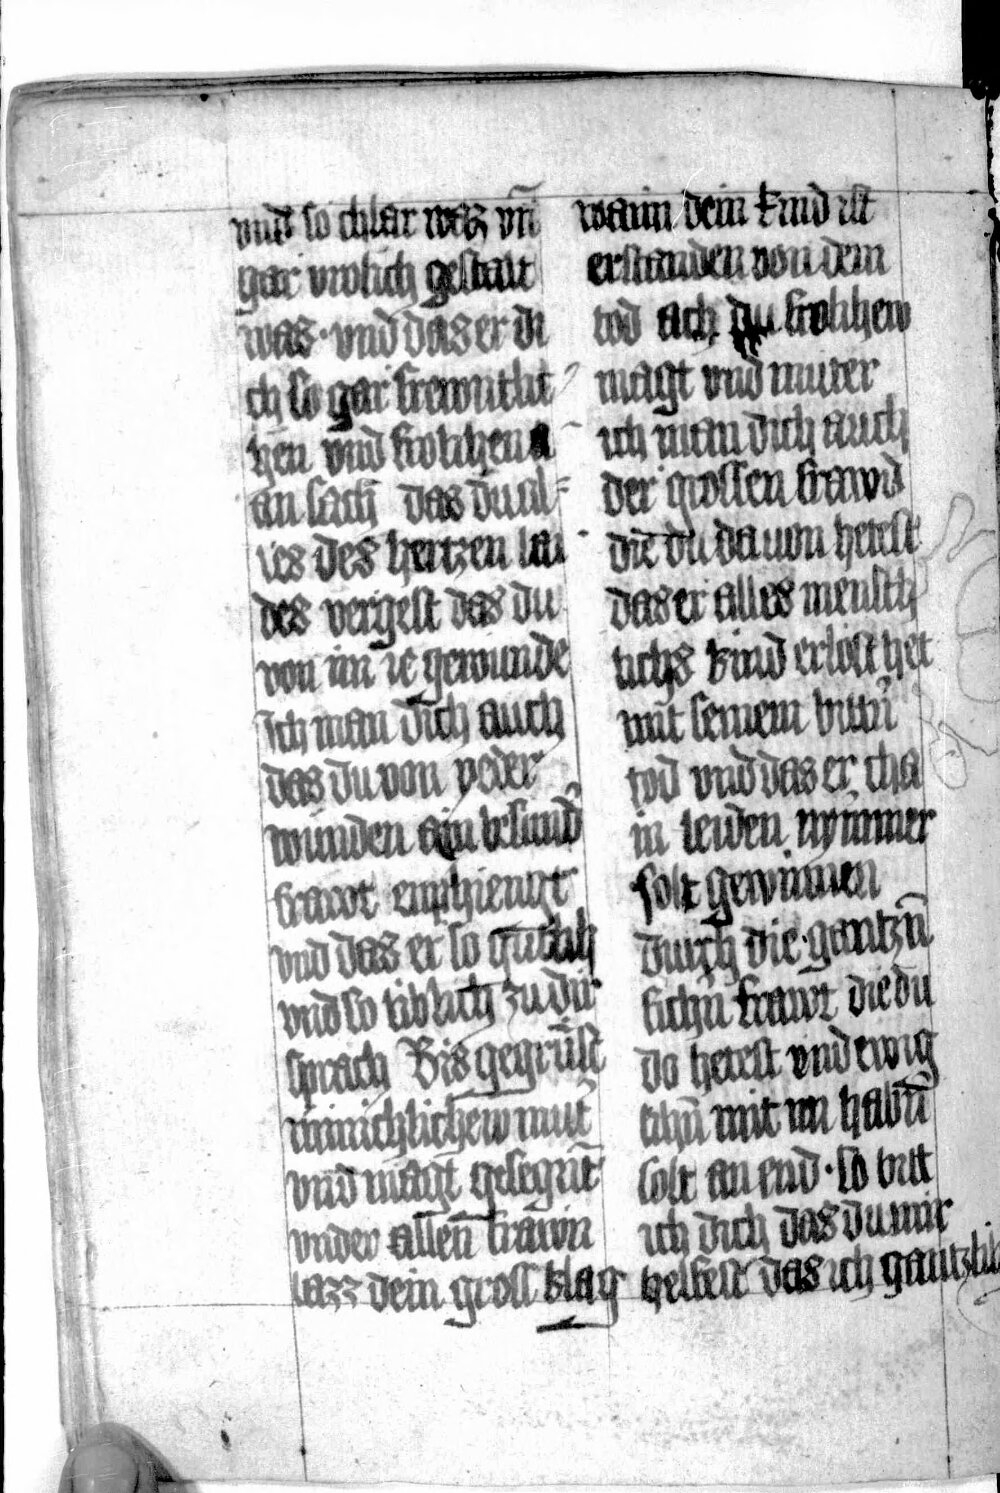 vnd so chlar waz vn̄
gar vrolich gestalt
was · vnd das er di
ch so gar frewntlit
hen vnd frolichen a
an sach das du al=
les des hertzen lai
des vergest das du
von im ie gewunde
Ich man dich auch
das du von yeder
wunden ain besund̾
frawt emphiengt
vnd das er so gutlich
vnd so liblich zu dir
sprach Bis gegrüst
minichlichew mut̾
vnd magt gesegnt
vnder allen̄ frawn
lazz dein gross klag
wann dein kind ist
erstanden von dem
tod ach du frolichew
magt vnd muter
ich man dich auch
der grossen frawd
die du da uon hetest
das er alles mensch
lichs kind erlost het
mit seinem bittn̄
tod vnd das er cha
in leiden nymmer
solt gewinnen
durch die gantzn̄
sichn̄ frawt die du
do hetest vnd ewig
lihn̄ mit im habn̄
solt an end · so bitt
ich dich das du mir
helfest das ich gantzlik